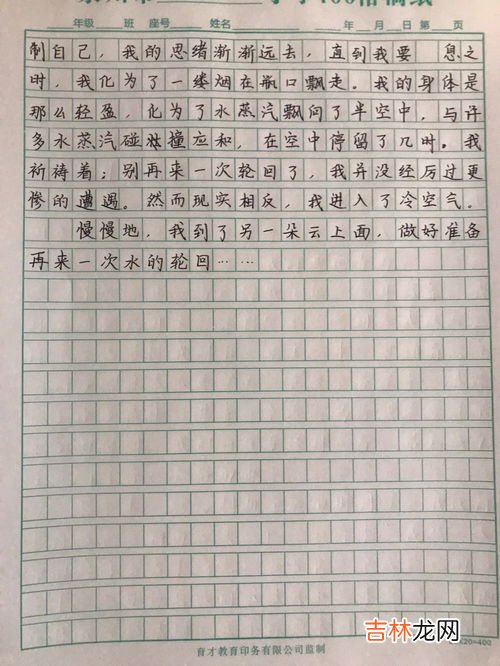 400格稿纸
年级 班 座号 姓名 年 月 日 第 页
制自己，我的思绪渐渐远去，直到我要 息之
时，我化为了一缕烟在瓶口飘走。我的身体是
那么轻盈，化为了水蒸汽飘向了半空中，与许
多水蒸汽碰撞应和，在空中停留了几时。我
祈祷着；别再来一次轮回了，我并没经历过更
惨的遭遇。然而现实相反，我进入了冷空气。
慢慢地，我到了另一朵云上面，做好准备
再来一次水的轮回……
20=400
育才教育印务有限公司监制
吉林龙网